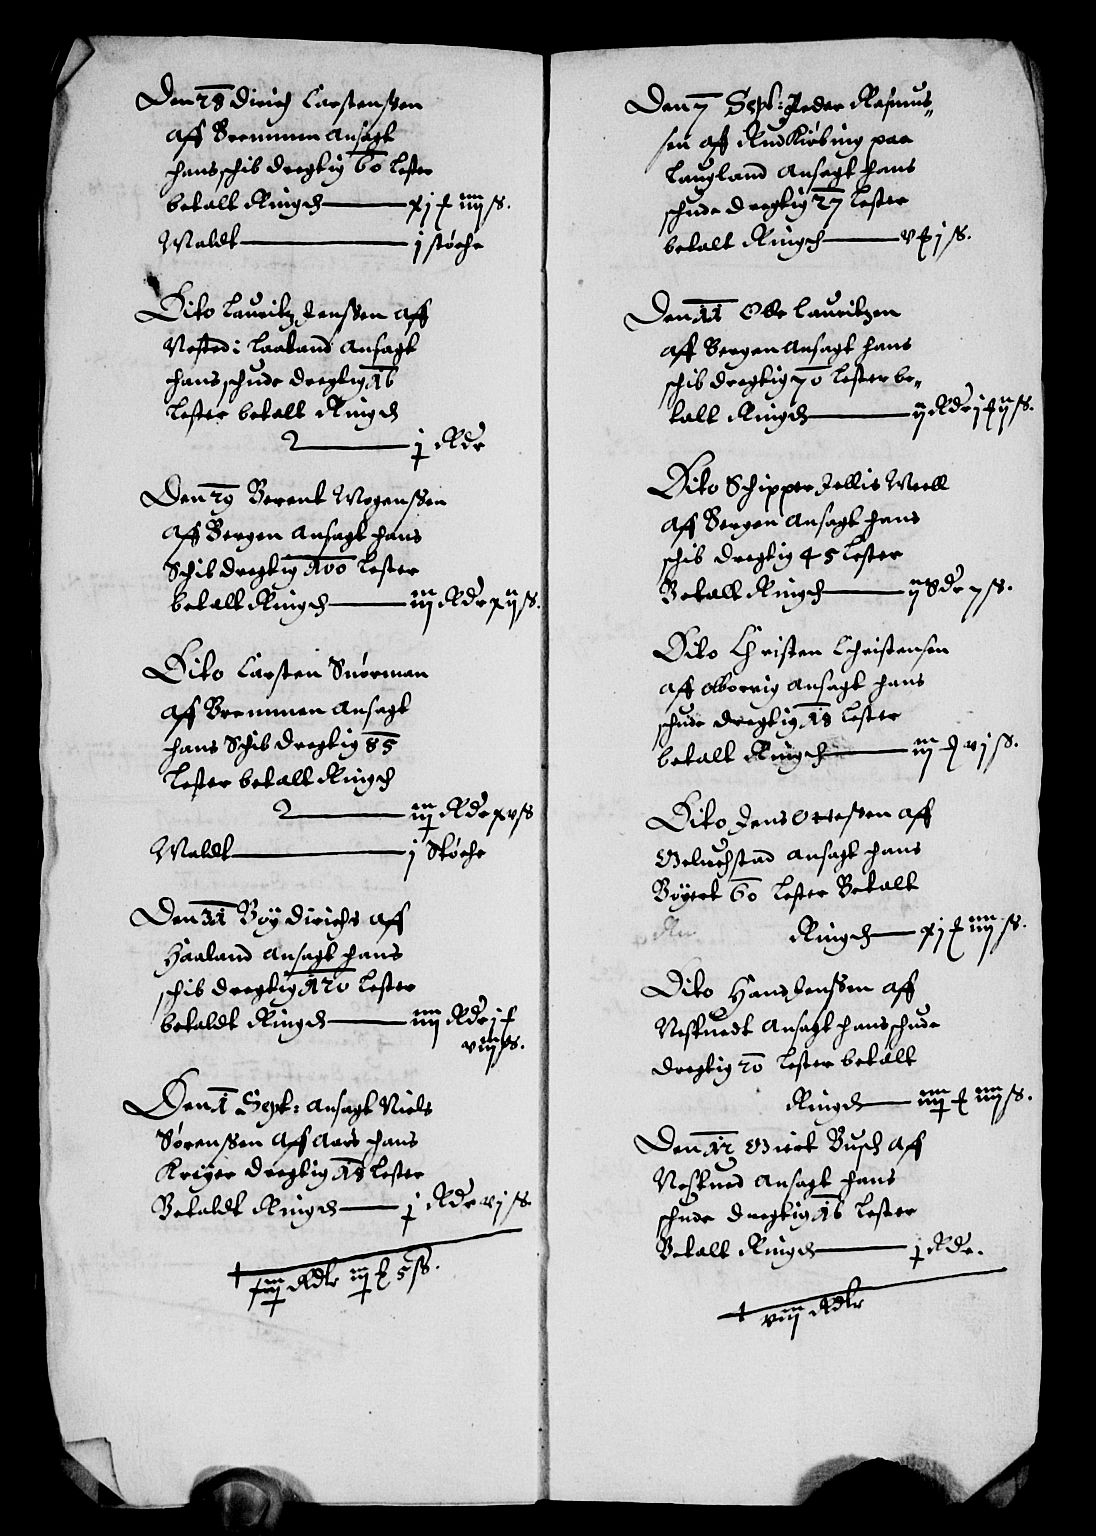 Den 28 Dirich Carstenssen
aff Bremmen Ansagt
hans schib dregtig 60 Lester
betalt Ringch xj ƒ iiij ß.
Waldt j støche
Dito Lauritz Jenssen aff
Nested i Laaland Ansagt
hans schude dregtig 16
Lester betalt Ringch
j Rdr
Den 29 Berent Mogenssen
aff Bergen Ansagt hans
Schib dregtig 100 Lester
betalt Ringch iij Rdr xij ß.
Dito Carsten Snorman
aff Bremmen Ansagt
hans Schib dregtig 85
Lester betalt Ringch
iij Rdr xv ß
Waldt j Støche
Den 31 Boy Dirichs aff
Haaland Ansagt hans
schib dregtig 120 Lester
betaldt Ringch iiij Rdr j ƒ
viij ß.
Den 1 Sept: Ansagt Niels
Sørenssen aff Aars hans
Kreyer dregtig 18 Lester
Betaldt Ringch j Rdr vj ß.
Rdlr iij ƒ 5 ß.
Den 7 Sept: Peder Rasmus„
sen aff Rudkiøbing paa
Laugland Ansagt hans
schude dregtig 27 Lester
betalt Ringch v ƒ j ß.
Den 11 Olle Lauritzen
aff Bergen Ansagt hans
schib dregtig 70 Lester be„
talt Ringch ij Rdr j ƒ ij ß.
Dito Schipper Jellis Weell
aff Bergen Ansagt hans
schib dregtig 45 Lester
Betalt Ringch ij Rdr x ß.
Dito Christen Christensen
aff Ansagt hans
schude dregtig 18 Lester
betalt Ringch iij ƒ vj ß.
Dito Jens Ottessen aff
Geluchstad Ansagt hans
Bøyert 60 Lester Betalt
Rin
Ringch xj ƒ iiij ß.
Dito Hans Jenssen aff
Nestuedt Ansagt hans schude
dregtig 20 Lester betalt
Ringch iiij ƒ iiij ß.
Den 12 Giert Busch aff
Nestued Ansagt hans
schude dregtig 16 Lester
Betalt Ringch j Rdr.
viij Rdlr